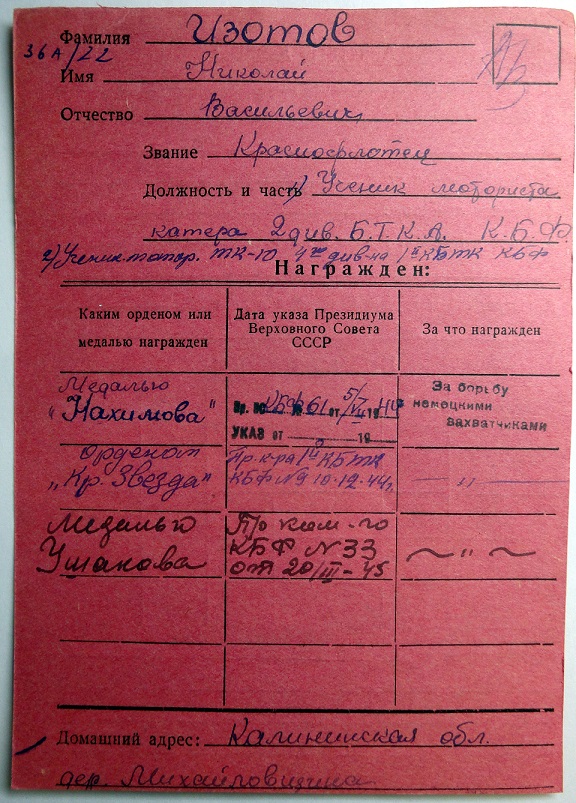 Фамилия Изотов
36А/22
Имя Николай
Отчество Васильевич
Звание Краснофлотец
Должность и часть 1) Ученик моториста
катера 2 див. Б.Т.К.А. К.Б.Ф.
2) Ученик мотор. ТК-10 див-на 1й КБТК КБФ
Награжден:
Каким орденом или медалью награжден
Дата указа Президиума Верховного Совета СССР
За что награжден
Медалью
"Нахимова"
КБФ № 61 от 5/VII 19 44
УКАЗ от 19
За борьбу
немецкими
захватчиками
орденом
"Кр. Звезда"
Пр. к-ра 1й КБТК
КБФ №9 10.12.44г.
— " —
Медалью
Ушакова
Пр ком-го
КБФ N 33
от 20/III-45
~ " ~
Домашний адрес: Калининская обл.
дер.